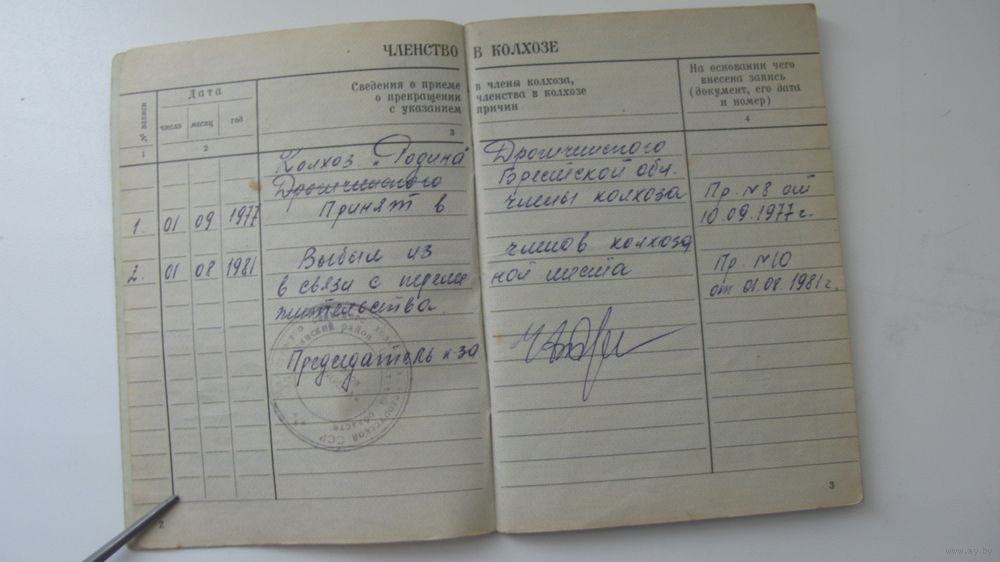 ЧЛЕНСТВО В КОЛХОЗЕ
№ записи
Дата
число месяц год
Сведения о приеме в члены колхоза,
о прекращении членства в колхозе
с указанием причин
На основании чего
внесена запись
(документ, его дата
и номер)
1 2 3 4
Колхоз "Родина" Дрогичинского
Дрогичинского Брестской обл.
1. 01 09 1977 Принят в члены колхоза Пр. №8 от
10.09.1977 г.
2. 01 08 1981 Выбыл из членов колхоза Пр. №10
в связи с переме ной места от 01.08 1981 г.
жительства.
Председатель к-за
район
области
ССР
2
3
www.ay.by